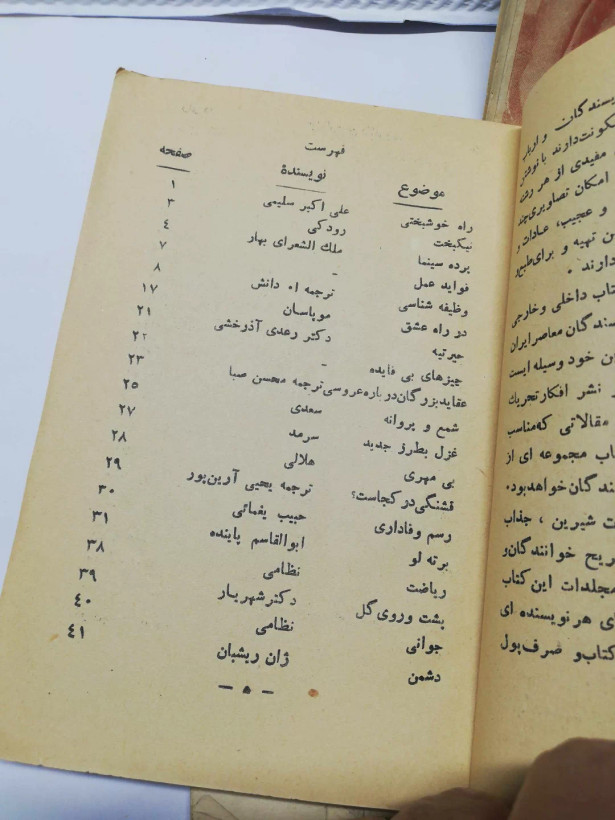 فهرست
موضوع نویسندۀ صفحه
راه خوشبختی علی اکبر سلیمی ۱
نیکبخت رودکی ۳
پرده سینما ملك الشعرای بهار ۴
فواید عمل - ۷
وظیفه شناسی ترجمه ا. دانش ۸
در راه عشق موپاسان ۱۷
حیرتیه دکتر رعدی آذرخشی ۲۱
چیزهای بی فایده - ۲۲
عقاید بزرگان درباره عروسی ترجمه محسن صبا ۲۳
شمع و پروانه سعدی ۲۵
غزل بطرز جدید سرمد ۲۷
بی مهری هلالی ۲۸
قشنگی در کجاست؟ ترجمه یحیی آرین پور ۲۹
رسم وفاداری حبیب یغمائی ۳۰
برته لو ابوالقاسم پاینده ۳۱
ریاضت نظامی ۳۸
پشت و روی گل دکتر شهریار ۳۹
جوانی نظامی ۴۰
دشمن ژان ریشپان ۴۱
- ۵ -
یسندگان و ارباب
کونت دارند با نوشتن
مفیدی از هر رشته
امکان تصاویری چند
و عجیب، عادات و
ن تهیه و برای طبع و
دارند .
تاب داخلی وخارجی
سندگان معاصر ایران
ان خود وسیله ایست
ر نشر افکار تحریك
مقالاتی که مناسب
اب مجموعه ای از
ندگان خواهد بود.
ت شیرین ، جذاب
ریح خوانندگان و
مجلدات این کتاب
ی هر نویسنده ای
کتاب و صرف پول